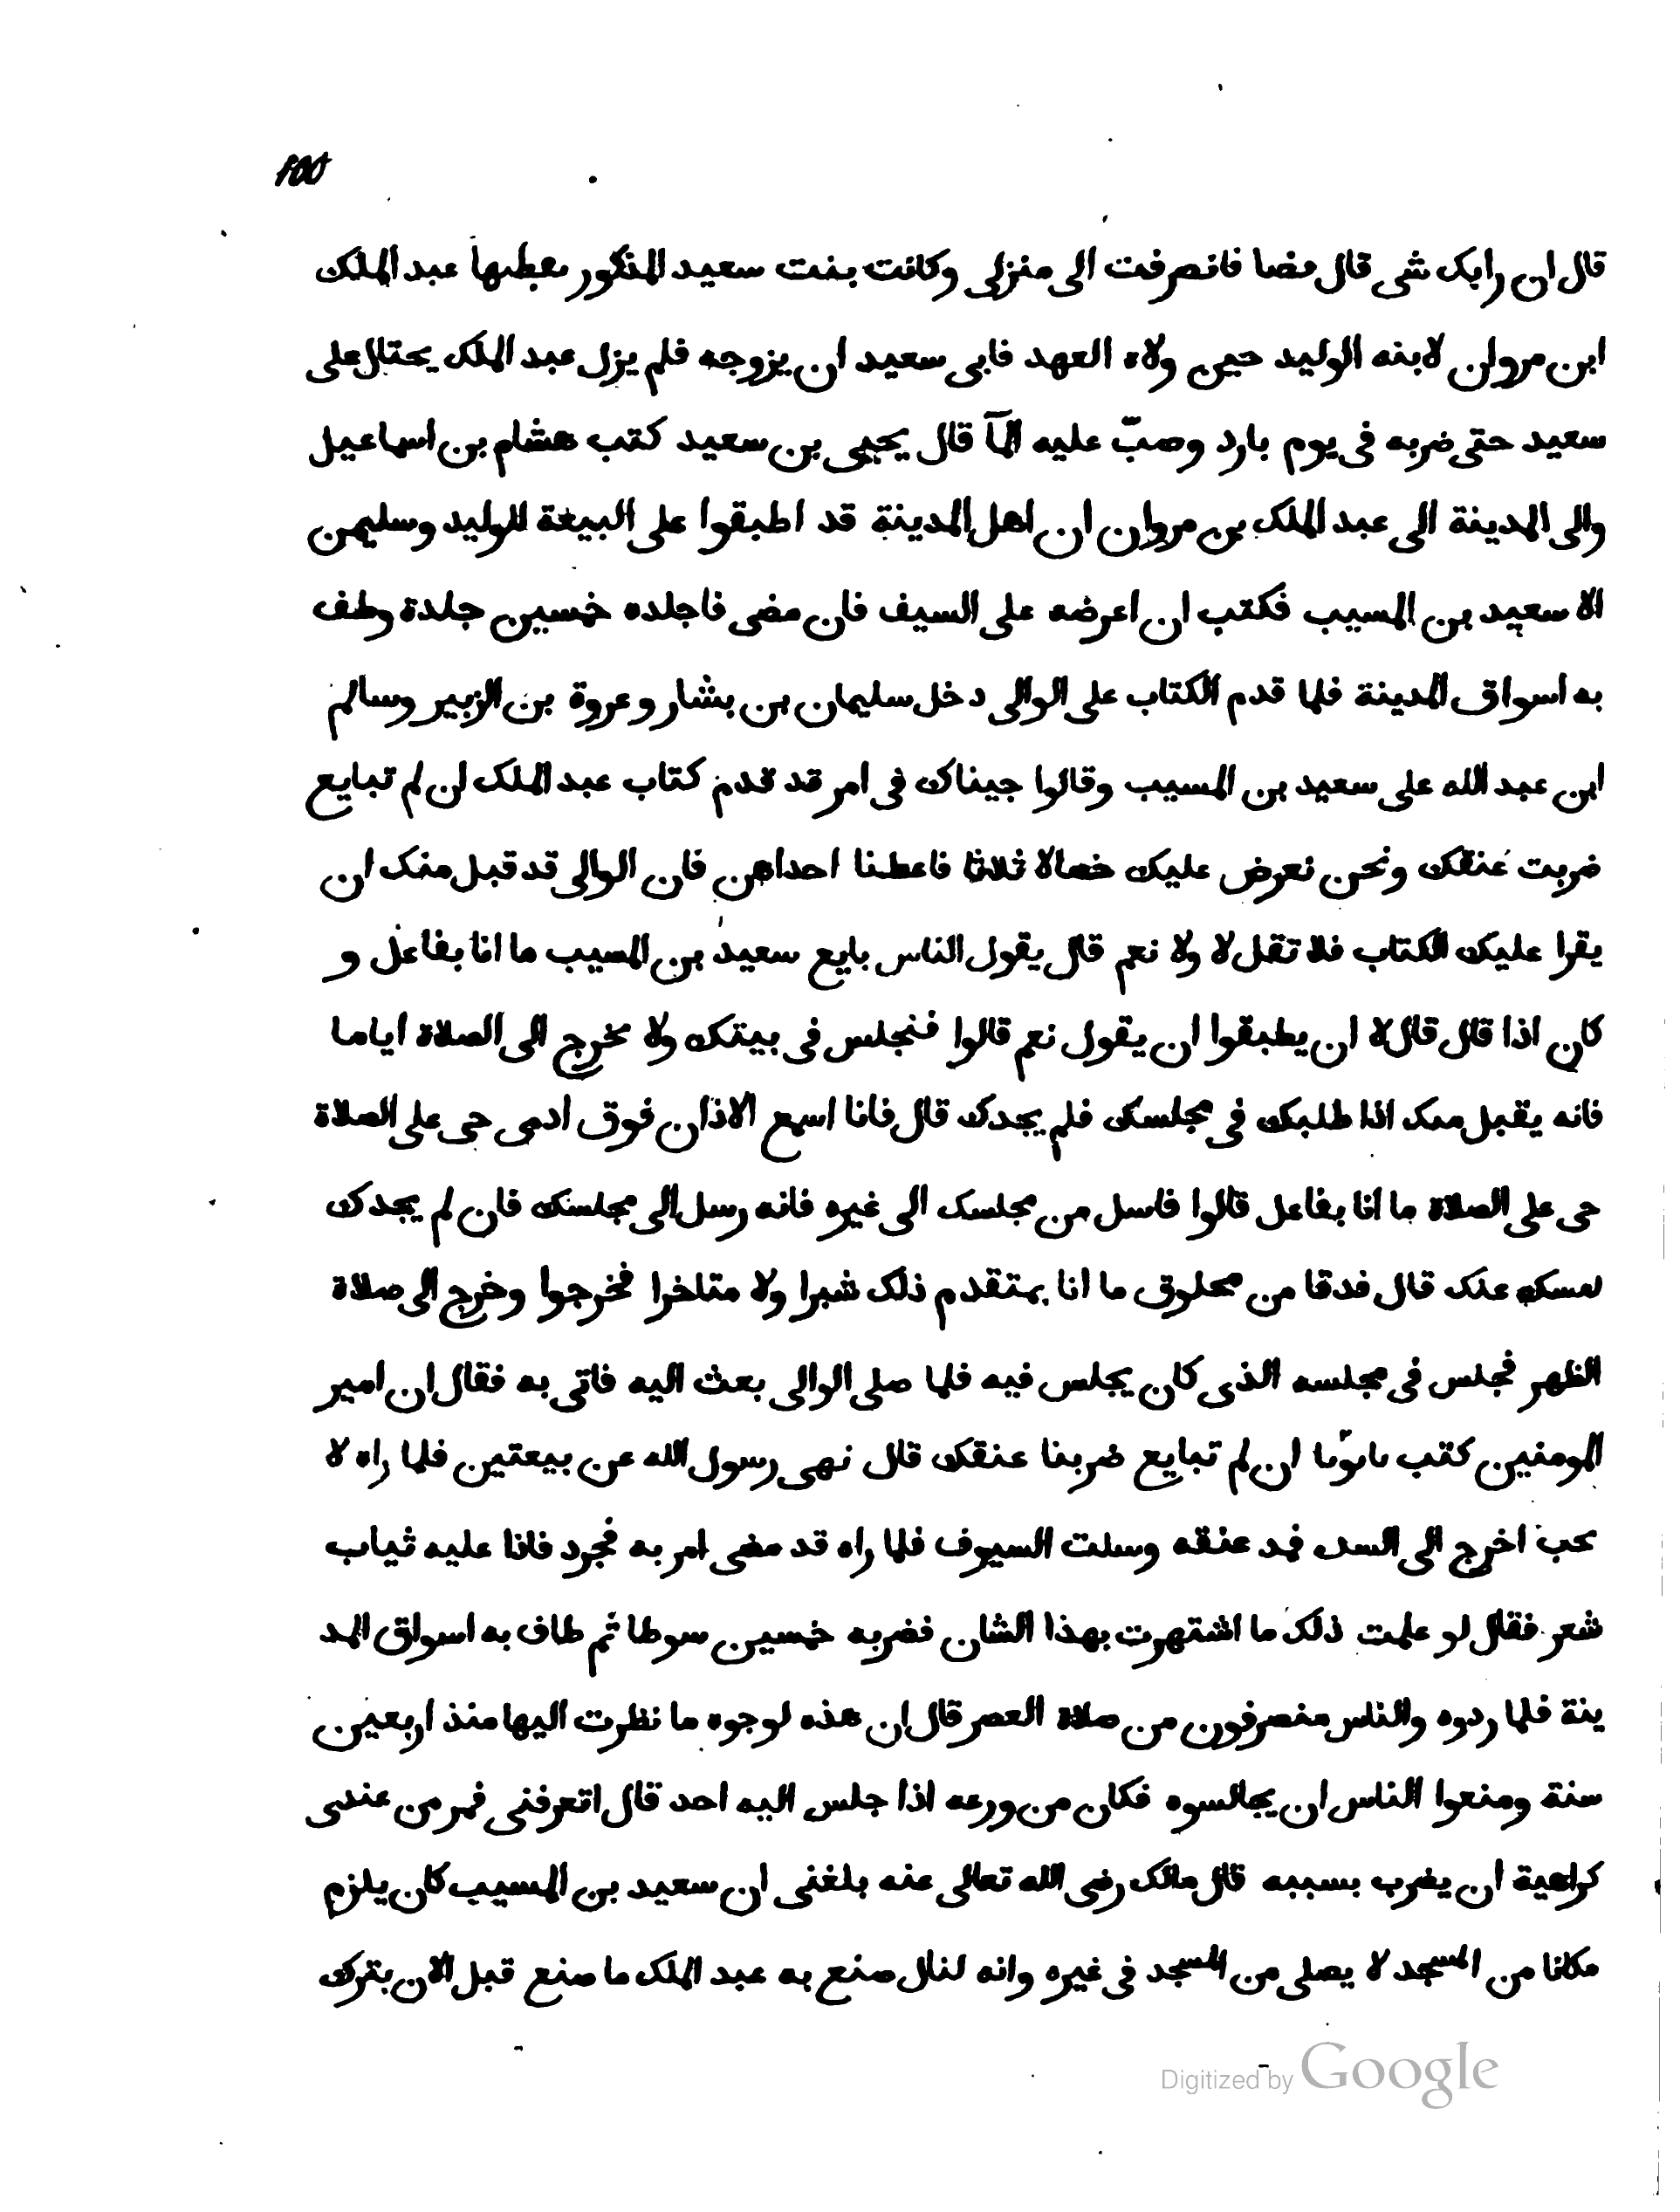 100
قال ان رابك شى قال فضا فانصرفت الى منزلى وكانت بنت سعيد المذكور يخطبها عبد الملك
ابن مروان لابنه الوليد حين ولاه العهد فابى سعيد ان يزوجه فلم يزل عبد الملك يحتال على
سعيد حتى ضربه فى يوم بارد وصبّ عليه المآ قال يحيى بن سعيد كتب هشام بن اسماعيل
والى المدينة الى عبد الملك بن مروان ان اهل المدينة قد اطبقوا على البيعة للوليد وسليمن
الا سعيد بن المسيب فكتب ان اعرضه على السيف فان مضى فاجلده خمسين جلدة وطف
به اسواق المدينة فلما قدم الكتاب على الوالى دخل سليمان بن بشار وعروة بن الزبير وسالم
ابن عبد الله على سعيد بن المسيب وقالوا جيناك فى امر قد قدم كتاب عبد الملك ان لم تبايع
ضربت عنقك ونحن نعرض عليك خصالا ثلاثا فاعطنا احداهن فان الوالى قد قبل منك ان
يقرا عليك الكتاب فلا تقل لا ولا نعم قال يقول الناس بايع سعيد بن المسيب ما انا بفاعل و
كان اذا قال قال لا ان يطبقوا ان يقول نعم قالوا فنجلس فى بيتك ولا تخرج الى الصلاة اياما
فانه يقبل منك اذا طلبك فى مجلسك فلم يجدك قال فانا اسمع الاذان فوق ادمى حى على الصلاة
حى على الصلاة ما انا بفاعل قالوا فاسل من مجلسك الى غيره فانه رسل الى مجلسك فان لم يجدك
لمسك عنك قال فدقا من مخلوق ما انا بمتقدم ذلك شبرا ولا متاخرا فخرجوا وخرج الى صلاة
الظهر فجلس فى مجلسه الذى كان يجلس فيه فلما صلى الوالى بعث اليه فاتى به فقال ان امير
المومنين كتب يامرنا ان لم تبايع ضربنا عنقك قال نهى رسول الله عن بيعتين فلما راه لا
يجب اخرج الى السده فمد عنقه وسلت السيوف فلما راه قد مضى امر به فجرد فاذا عليه ثياب
شعر فقال لو علمت ذلك ما اشتهرت بهذا الشان فضربه خمسين سوطا ثم طاف به اسواق المد
ينة فلما ردوه والناس منصرفون من صلاة العصر قال ان هذه لوجوه ما نظرت اليها منذ اربعين
سنة ومنعوا الناس ان يجالسوه فكان من ورعه اذا جلس اليه احد قال اتعرفنى فمر من عندى
كراهية ان يضرب بسببه قال مالك رضى الله تعالى عنه بلغنى ان سعيد بن المسيب كان يلزم
مكانا من المسجد لا يصلى من المسجد فى غيره وانه لنال صنع به عبد الملك ما صنع قبل الان بترك
Digitized by Google